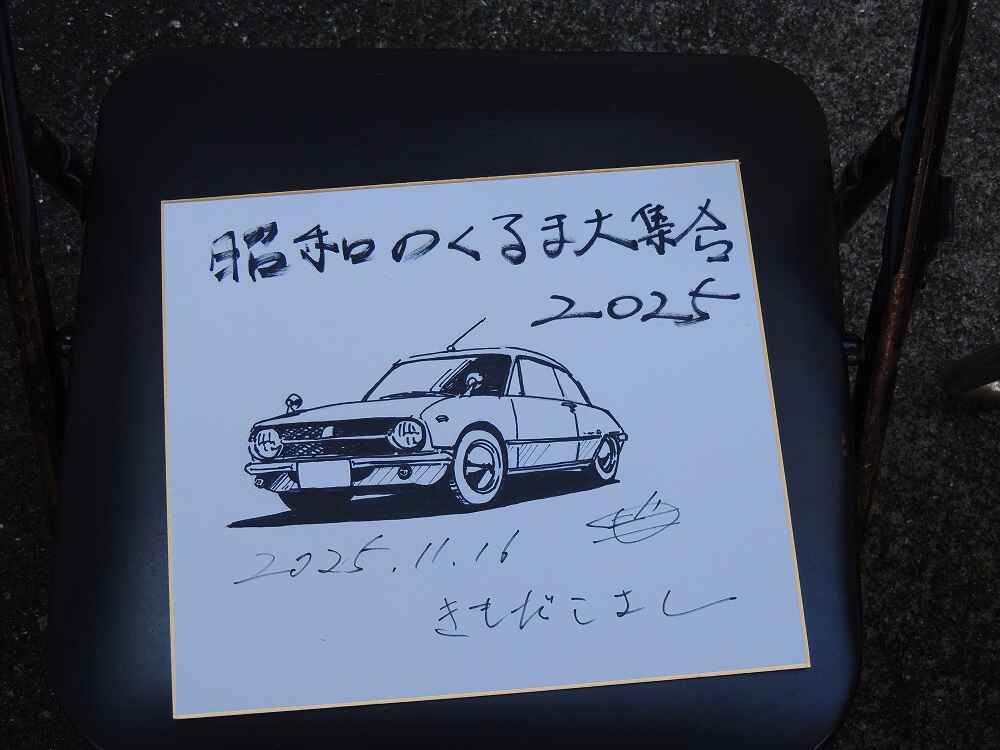 昭和のくるま大集会
2025
2025.11.16
きもだこよし